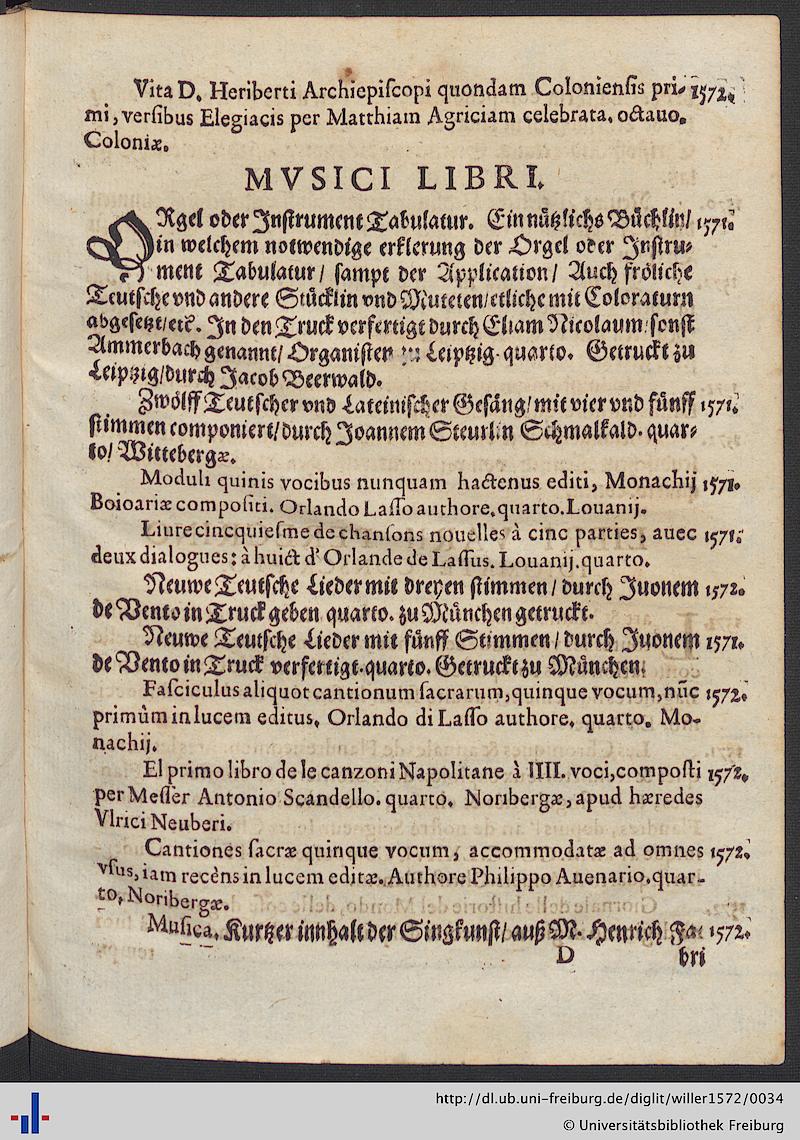 Vita D. Heriberti Archiepiſcopi quondam Colonienſis pri- 1572.
mi, verſibus Elegiacis per Matthiam Agriciam celebrata. octauo.
Coloniæ.
MVSICI LIBRI.
ORgel oder Inſtrument Tabulatur. Ein nützlichs Büchlin/ 1571.
in welchem notwendige erklerung der Orgel oder Inſtru-
ment Tabulatur/ ſampt der Application/ Auch fröliche
Teutſche vnd andere Stücklin vnd Muteten/etliche mit Coloraturn
abgeſetzt/etc. In den Truck verfertigt durch Eliam Nicolaum/ſonſt
Ammerbach genannt/ Organiſten zu Leiptzig. quarto. Getruckt zu
Leiptzig/durch Jacob Beerwald.
Zwölff Teutſcher vnd Lateiniſcher Geſäng/mit vier vnd fünff 1571.
ſtimmen componiert/durch Joannem Steurlin Schmalkald. quar-
to/ Wittebergæ.
Moduli quinis vocibus nunquam hactenus editi, Monachij 1571.
Boioariæ compoſiti. Orlando Laſſo authore. quarto. Louanij.
Liure cincquieſme de chanſons nouelles à cinc parties, auec 1571.
deux dialogues: à huict d'Orlande de Laſſus. Louanij. quarto.
Neuwe Teutſche Lieder mit dreyen ſtimmen/ durch Juonem 1572.
de Vento in Truck geben quarto. zu München getruckt.
Neuwe Teutſche Lieder mit fünff Stimmen/durch Juonem 1571.
de Vento in Truck verfertigt. quarto. Getruckt zu München.
Faſciculus aliquot cantionum ſacrarum, quinque vocum, nūc 1572.
primùm in lucem editus. Orlando di Laſſo authore. quarto. Mo-
nachij.
El primo libro de le canzoni Napolitane à IIII. voci, compoſti 1572.
per Meſſer Antonio Scandello. quarto. Noribergæ, apud hæredes
Vlrici Neuberi.
Cantiones ſacræ quinque vocum, accommodatæ ad omnes 1572.
vſus, iam recèns in lucem editæ. Authore Philippo Auenario. quar-
to, Noribergæ.
Muſica. Kurtzer innhalt der Singkunſt/ auß M. Henrich Fa 1572.
D bri
http://dl.ub.uni-freiburg.de/diglit/willer1572/0034
© Universitätsbibliothek Freiburg